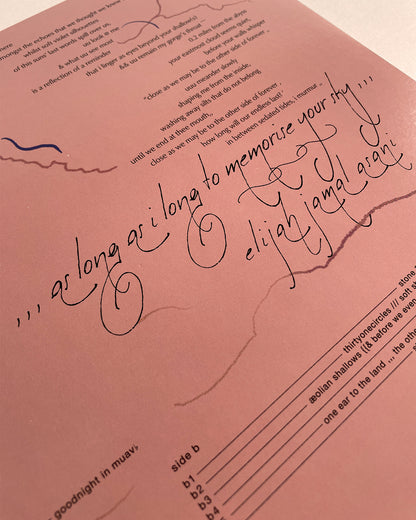 here
amongst the echoes that we thought we knew
whilst soft violet silhouettes
of this suns' last words spill over us,
uu look @ me
& what uu see most
is a reflection of a reminder
that i linger as eyes beyond your shallow(s)
&& uu remain my gorge's throat
0.2 miles from the abyss
your eastmost cloud seems quiet,
before your walls whisper
" close as we may be to the other side of forever, "
uuu meander slowly
shaping me from the inside,
washing away silts that do not belong
until we end at thee mouth,
" close as we may be to the other side of forever,
how long will our endless last? "
in between sedated tides, i murmur ,
,,, as long as i long to memorise your sky ,,,
elijah jamal asani
side b
b1
b2
b3
b4
stone
thirtyonecircles /// soft
æolian shallows ((& before we
one ear to the land ,,, the other
goodnight in muav♭